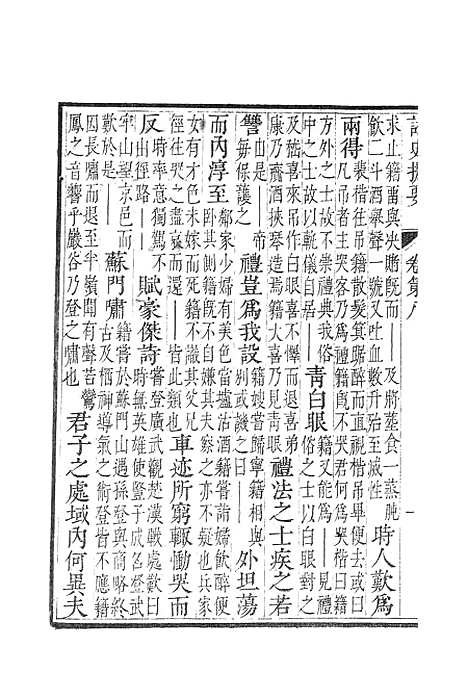 求止籍留與決賭既而——及將葬食一蒸肫
飲二斗酒舉聲一號又吐血數升殆至滅性
時人歎爲
兩得
裴楷往吊籍散髮箕踞醉而直視楷吊畢便去或曰
凡吊者主哭客乃爲禮籍既不哭君何爲哭楷曰籍
方外之士故不崇禮典我俗
中之士故以軌儀自居——
青白眼
籍又能爲——見禮
俗之士以白眼對之
及嵇喜來吊作白眼喜不懌而退喜弟
康乃齎酒挾琴造焉籍大悅乃見青眼
禮法之士疾之若
讐
由是——帝
每保護之
禮豈爲我設
籍嫂嘗歸寧籍相
別或譏之曰——
外坦蕩
而内淳至
鄰家少婦有美色當壚沽酒籍嘗詣婦飲醉便
卧其側籍既不自嫌其夫察之亦不疑也兵家
女有才色未嫁而死籍不識其父兄
徑往哭之盡哀而還——皆此類也
車迹所窮輙慟哭而
反
時率意獨駕不
由徑路——
賦豪傑詩
嘗登廣武觀楚漢戰處曰
時無英雄使豎子成名登武
牢山望京邑而
歎於是——
蘇門嘯
籍嘗於蘇門山遇孫登與商略終
古及栖神導氣之術登皆不應籍
因長嘯而退至半嶺聞有聲若鸞
鳳之音響乎巖谷乃登之嘯也
君子之處域内何異夫